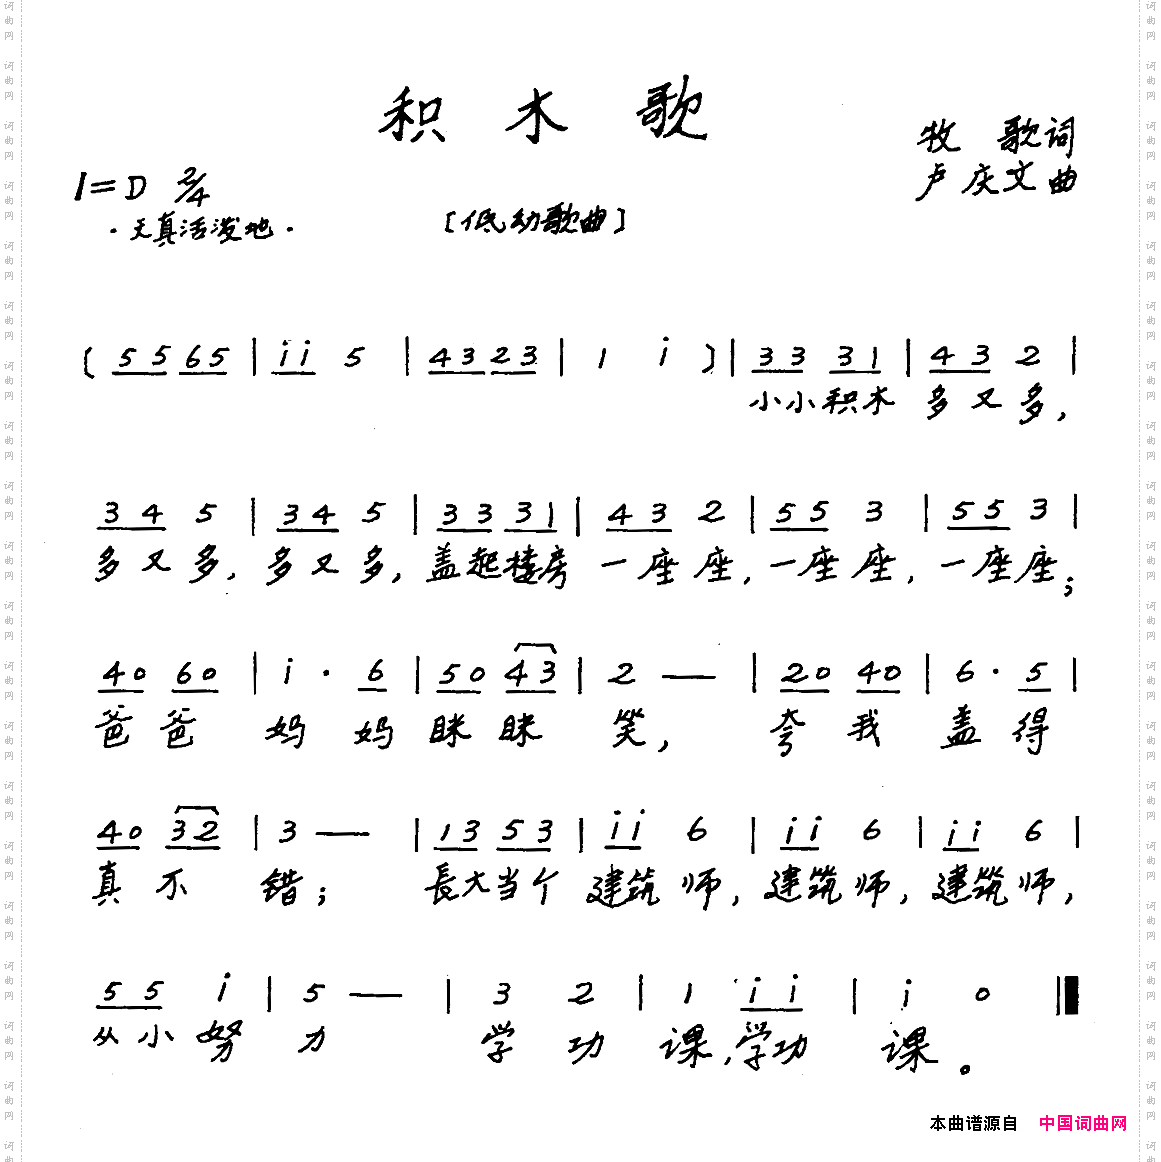 积木歌
牧 歌词
卢庆文曲
1=D 2/4
·天真活泼地·
[低幼歌曲]
( 5 5 6 5 | i i 5 | 4 3 2 3 | 1 i ) | 3 3 3 1 | 4 3 2 |
小小积木 多又多,
3 4 5 | 3 4 5 | 3 3 3 1 | 4 3 2 | 5 5 3 | 5 5 3 |
多又多, 多又多, 盖起楼房 一座座, 一座座, 一座座;
4 0 6 0 | i · 6 | 5 0 4 3 | 2 — | 2 0 4 0 | 6 · 5 |
爸爸 妈 妈 眯眯 笑, 夸我 盖得
4 0 3 2 | 3 — | 1 3 5 3 | i i 6 | i i 6 | i i 6 |
真不 错; 長大当个 建筑师, 建筑师, 建筑师,
5 5 i | 5 — | 3 2 | 1 i i | i 0 ‖
从小努 力 学功 课,学功 课。
本曲谱源自 中国词曲网